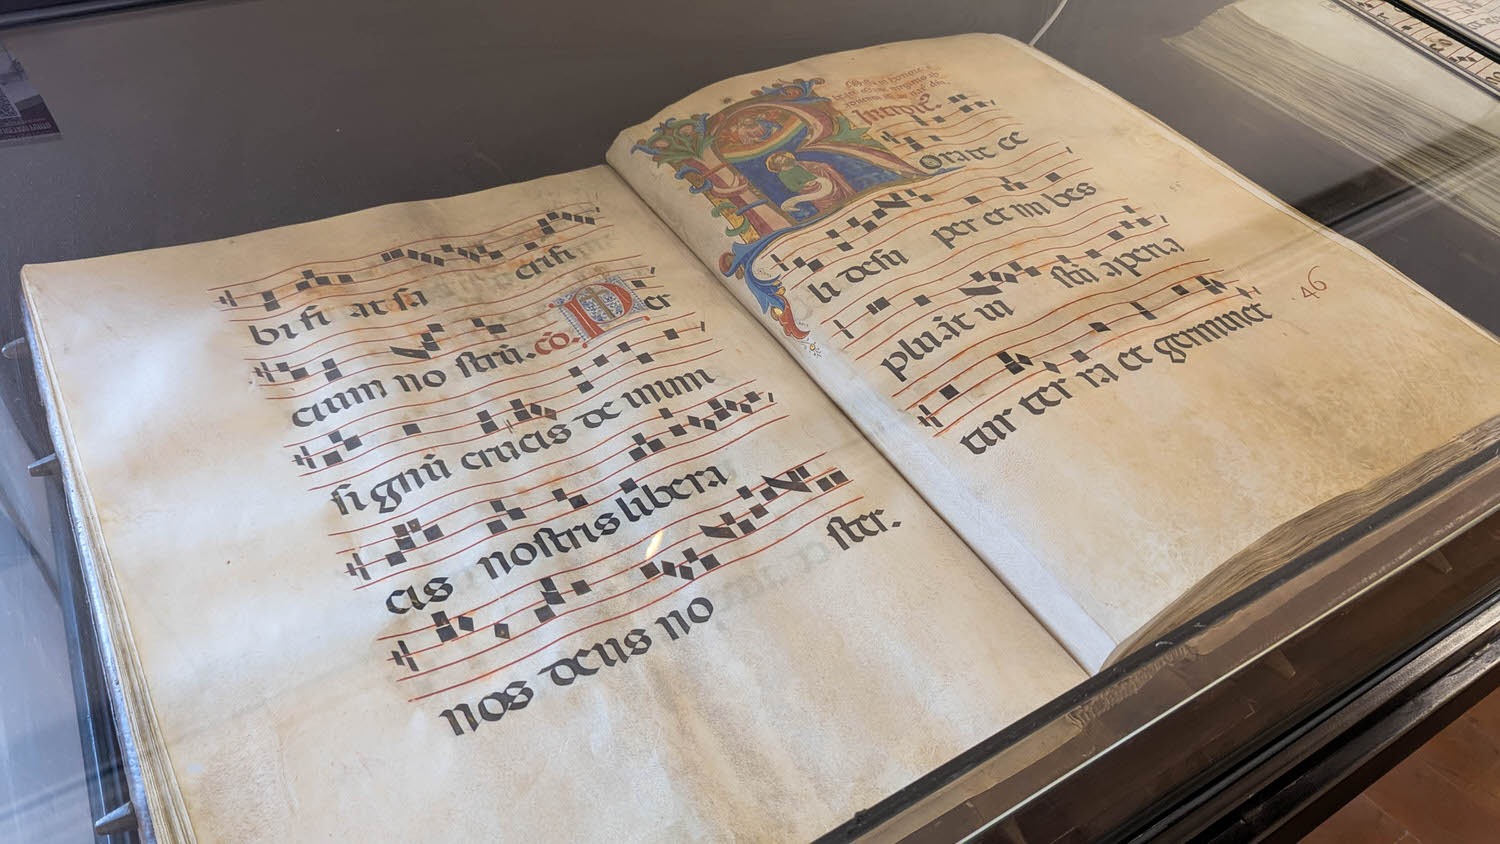 bi si at sa crifi
cium no strũ. cõ. Per
signũ crucis de inimi
cis nostris libera
nos deus no ster.
Introit̃.
Rorate ce
li desu per et nu bes
pluãt iu stũ aperia
tur ter ra et germinet
46